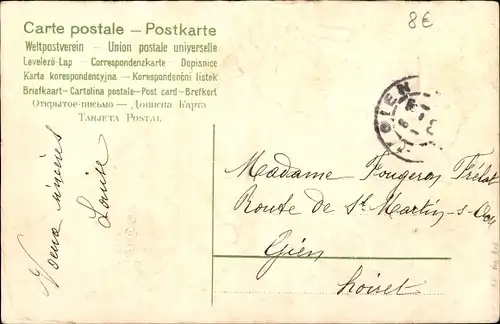 Carte postale — Postkarte
Weltpostverein — Union postale universelle
Levelező-Lap — Correspondenzkarte — Dopisnice
Karta korespondencyjna — Korespondenční lístek
Briefkaart — Cartolina postale — Post card — Brefkort
Открытое письмо — Дописна Карта
TARJETA POSTAL
8€
GIEN
Vœux sincères
Louise
Madame Fougeron Frélat
Route de St Martin-s-Ocre
Gien
Loiret